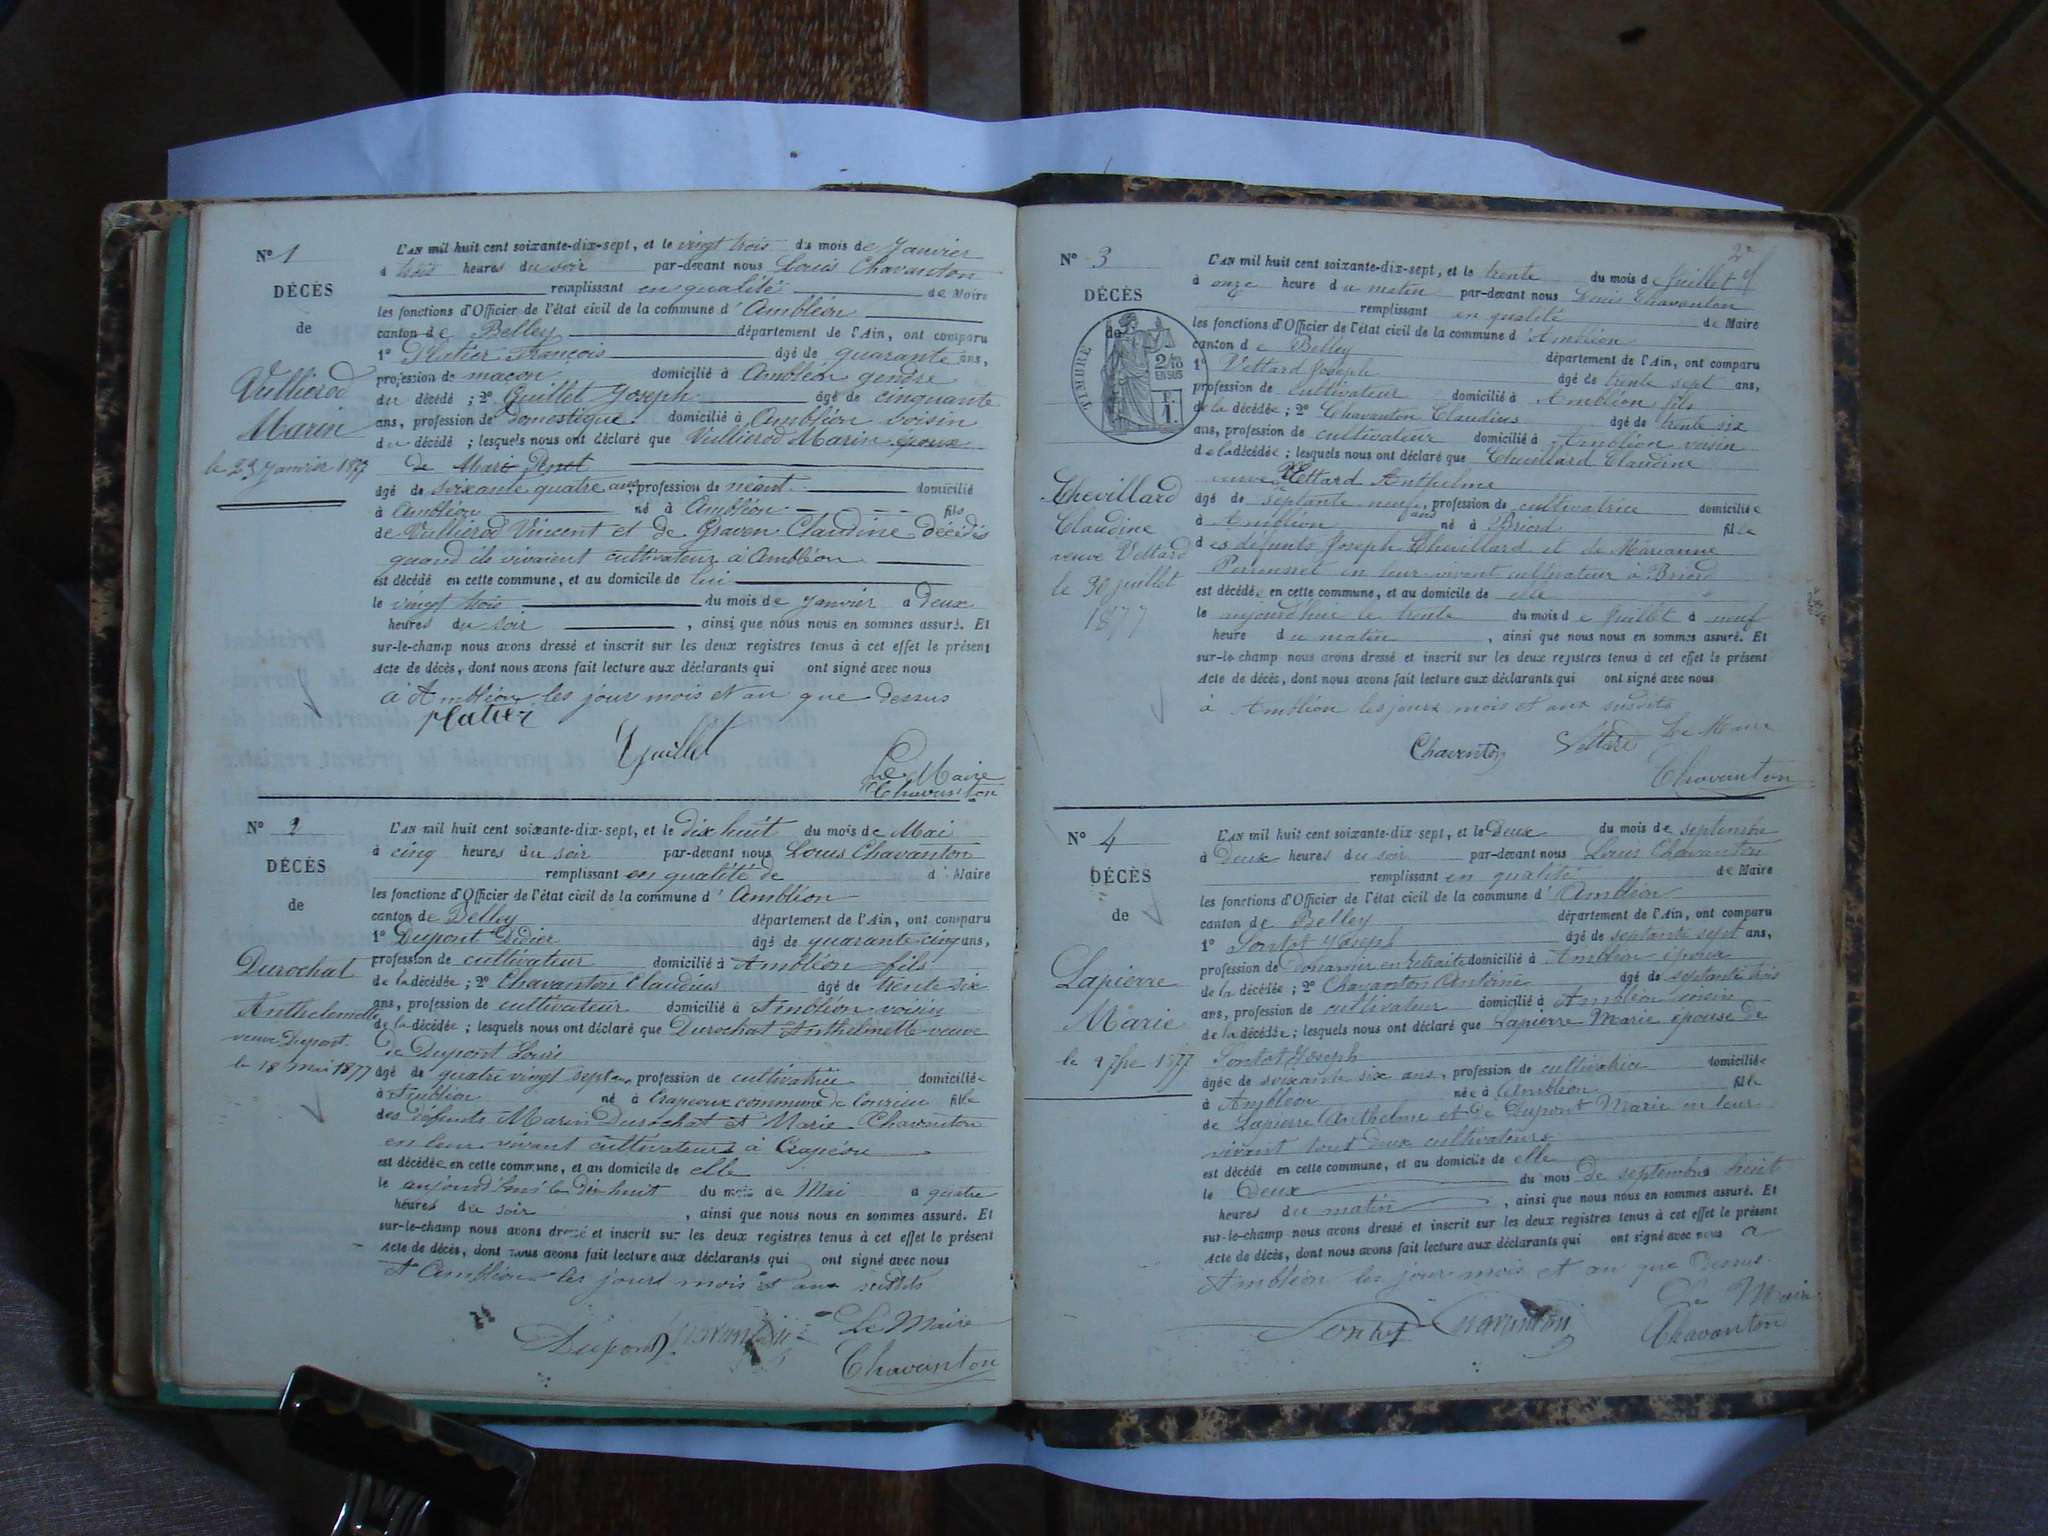 N° 1
DÉCÈS
de
Vullierod
Marin
le 23 Janvier 1877
L'AN mil huit cent soixante-dix-sept, et le vingt trois du mois de Janvier
à trois heures du soir par-devant nous Louis Chavanton
remplissant en qualité de Maire
les fonctions d'Officier de l'état civil de la commune d' Ambléon
canton de Belley département de l'Ain, ont comparu
1° Platier François âgé de quarante ans,
profession de maçon domicilié à Ambléon gendre
du décédé ; 2° Guillet Joseph âgé de cinquante
ans, profession de domestique domicilié à Ambléon voisin
du décédé ; lesquels nous ont déclaré que Vullierod Marin époux
de Mari Penet
âgé de soixante quatre ans, profession de néant domicilié
à Ambléon né à Ambléon fils
de Vullierod Vincent et de Graven Claudine décédés
quand ils vivaient cultivateur à Ambléon
est décédé en cette commune, et au domicile de lui
le vingt trois du mois de Janvier à deux
heures du soir , ainsi que nous nous en sommes assuré. Et
sur-le-champ nous avons dressé et inscrit sur les deux registres tenus à cet effet le présent
Acte de décès, dont nous avons fait lecture aux déclarants qui ont signé avec nous
a Ambléon les jour mois et an que dessus
platier
Guillet
Le Maire
Chavanton
N° 2
DÉCÈS
de
Durochat
Anthelemette
veuve Dupont
le 18 Mai 1877
L'AN mil huit cent soixante-dix-sept, et le dix huit du mois de Mai
à cinq heures du soir par-devant nous Louis Chavanton
remplissant en qualité de d' Maire
les fonctions d'Officier de l'état civil de la commune d' Ambléon
canton de Belley département de l'Ain, ont comparu
1° Dupont Didier âgé de quarante cinq ans,
profession de cultivateur domicilié à Ambléon fils
de la décédée ; 2° Chavanton Claudius âgé de trente six
ans, profession de cultivateur domicilié à Ambléon voisin
de la décédée ; lesquels nous ont déclaré que Durochat Anthelmette veuve
de Dupont Louis
âgé de quatre vingt sept ans profession de cultivatrice domiciliée
à Ambléon né à Crapeoux commune de Conzieu fille
des défunts Marin Durochat et Marie Chavanton
en leur vivant cultivateurs à Crapéou
est décédée en cette commune, et au domicile de elle
le aujourd'hui le dix huit du mois de Mai à quatre
heures du soir , ainsi que nous nous en sommes assuré. Et
sur-le-champ nous avons dressé et inscrit sur les deux registres tenus à cet effet le présent
Acte de décès, dont nous avons fait lecture aux déclarants qui ont signé avec nous
A Ambléon les jours mois et ans susdits
Dupont
Le Maire
Chavanton
2e
N° 3
DÉCÈS
de
TIMBRE
2/10
EN SUS
Chevillard
Claudine
veuve Vettard
le 30 juillet
1877
L'AN mil huit cent soixante-dix-sept, et le trente du mois d Juillet
à onze heure du matin par-devant nous Louis Chavanton
remplissant en qualité de Maire
les fonctions d'Officier de l'état civil de la commune d' Ambléon
canton de Belley département de l'Ain, ont comparu
1° Vettard Joseph âgé de trente sept ans,
profession de cultivateur domicilié à Ambléon fils
de la décédée ; 2° Chavanton Claudius âgé de trente six
ans, profession de cultivateur domicilié à Ambléon voisin
de la décédée ; lesquels nous ont déclaré que Chevillard Claudine
veuve de Vettard Anthelme
âgé de septante neuf ans, profession de cultivatrice domiciliée
à Ambléon né à Briord fille
des défunts Joseph Chevillard et de Marianne
Perrousset en leur vivant cultivateur à Briord
est décédée en cette commune, et au domicile de elle
le aujourdhui le trente du mois de Juillet à neuf
heure du matin , ainsi que nous nous en sommes assuré. Et
sur-le-champ nous avons dressé et inscrit sur les deux registres tenus à cet effet le présent
Acte de décès, dont nous avons fait lecture aux déclarants qui ont signé avec nous
à Ambléon les jours mois et ans susdits
Chavanton Vettard Le Maire
Chavanton
N° 4
DÉCÈS
de
Lapierre
Marie
le 2 7bre 1877
L'AN mil huit cent soixante-dix-sept, et le Deux du mois de septembre
à Deux heures du soir par-devant nous Louis Chavanton
remplissant en qualité de Maire
les fonctions d'Officier de l'état civil de la commune d' Ambléon
canton de Belley département de l'Ain, ont comparu
1° Sontot Joseph âgé de septante sept ans,
profession de Douanier en retraite domicilié à Ambléon époux
de la décédée ; 2° Chavanton Antoine âgé de septante trois
ans, profession de cultivateur domicilié à Ambléon voisin
de la décédée ; lesquels nous ont déclaré que Lapierre Marie épouse de
Sontot Joseph
âgée de soixante six ans, profession de cultivatrice domiciliée
à Ambléon née à Ambléon fille
de Lapierre Anthelme et de Dupont Marie en leur
vivant tout deux cultivateurs
est décédé en cette commune, et au domicile de elle
le Deux du mois de septembre huit
heures du matin , ainsi que nous nous en sommes assuré. Et
sur-le-champ nous avons dressé et inscrit sur les deux registres tenus à cet effet le présent
Acte de décès, dont nous avons fait lecture aux déclarants qui ont signé avec nous a
Ambléon les jour mois et an que Dessus
Le Maire
Sontot Chavanton
Chavanton